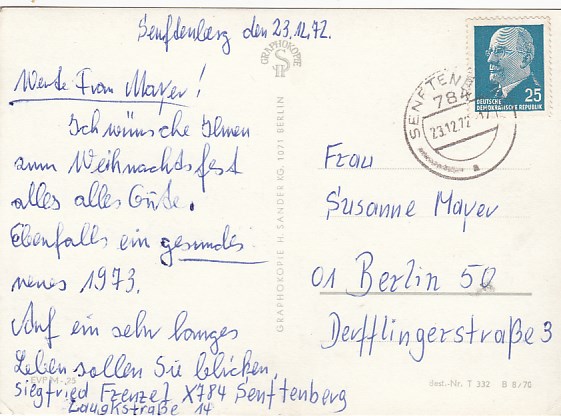 Senftenberg den 23.12.72.
Werte Frau Mayer!
Ich wünsche Ihnen
zum Weihnachtsfest
alles alles Gute.
Ebenfalls ein gesundes
neues 1973.
Auf ein sehr langes
Leben sollen Sie blicken.
Siegfried Frenzel X784 Senftenberg
Lauchstraße 14
EVP M -,25
GRAPHOKOPIE
GRAPHOKOPIE H. SANDER KG, 1071 BERLIN
SENFTENBERG
784
23.12.72
a
25
DEUTSCHE
DEMOKRATISCHE REPUBLIK
Frau
Susanne Mayer
01 Berlin 50
Derfflingerstraße 3
Best.-Nr. T 332 B 8/70